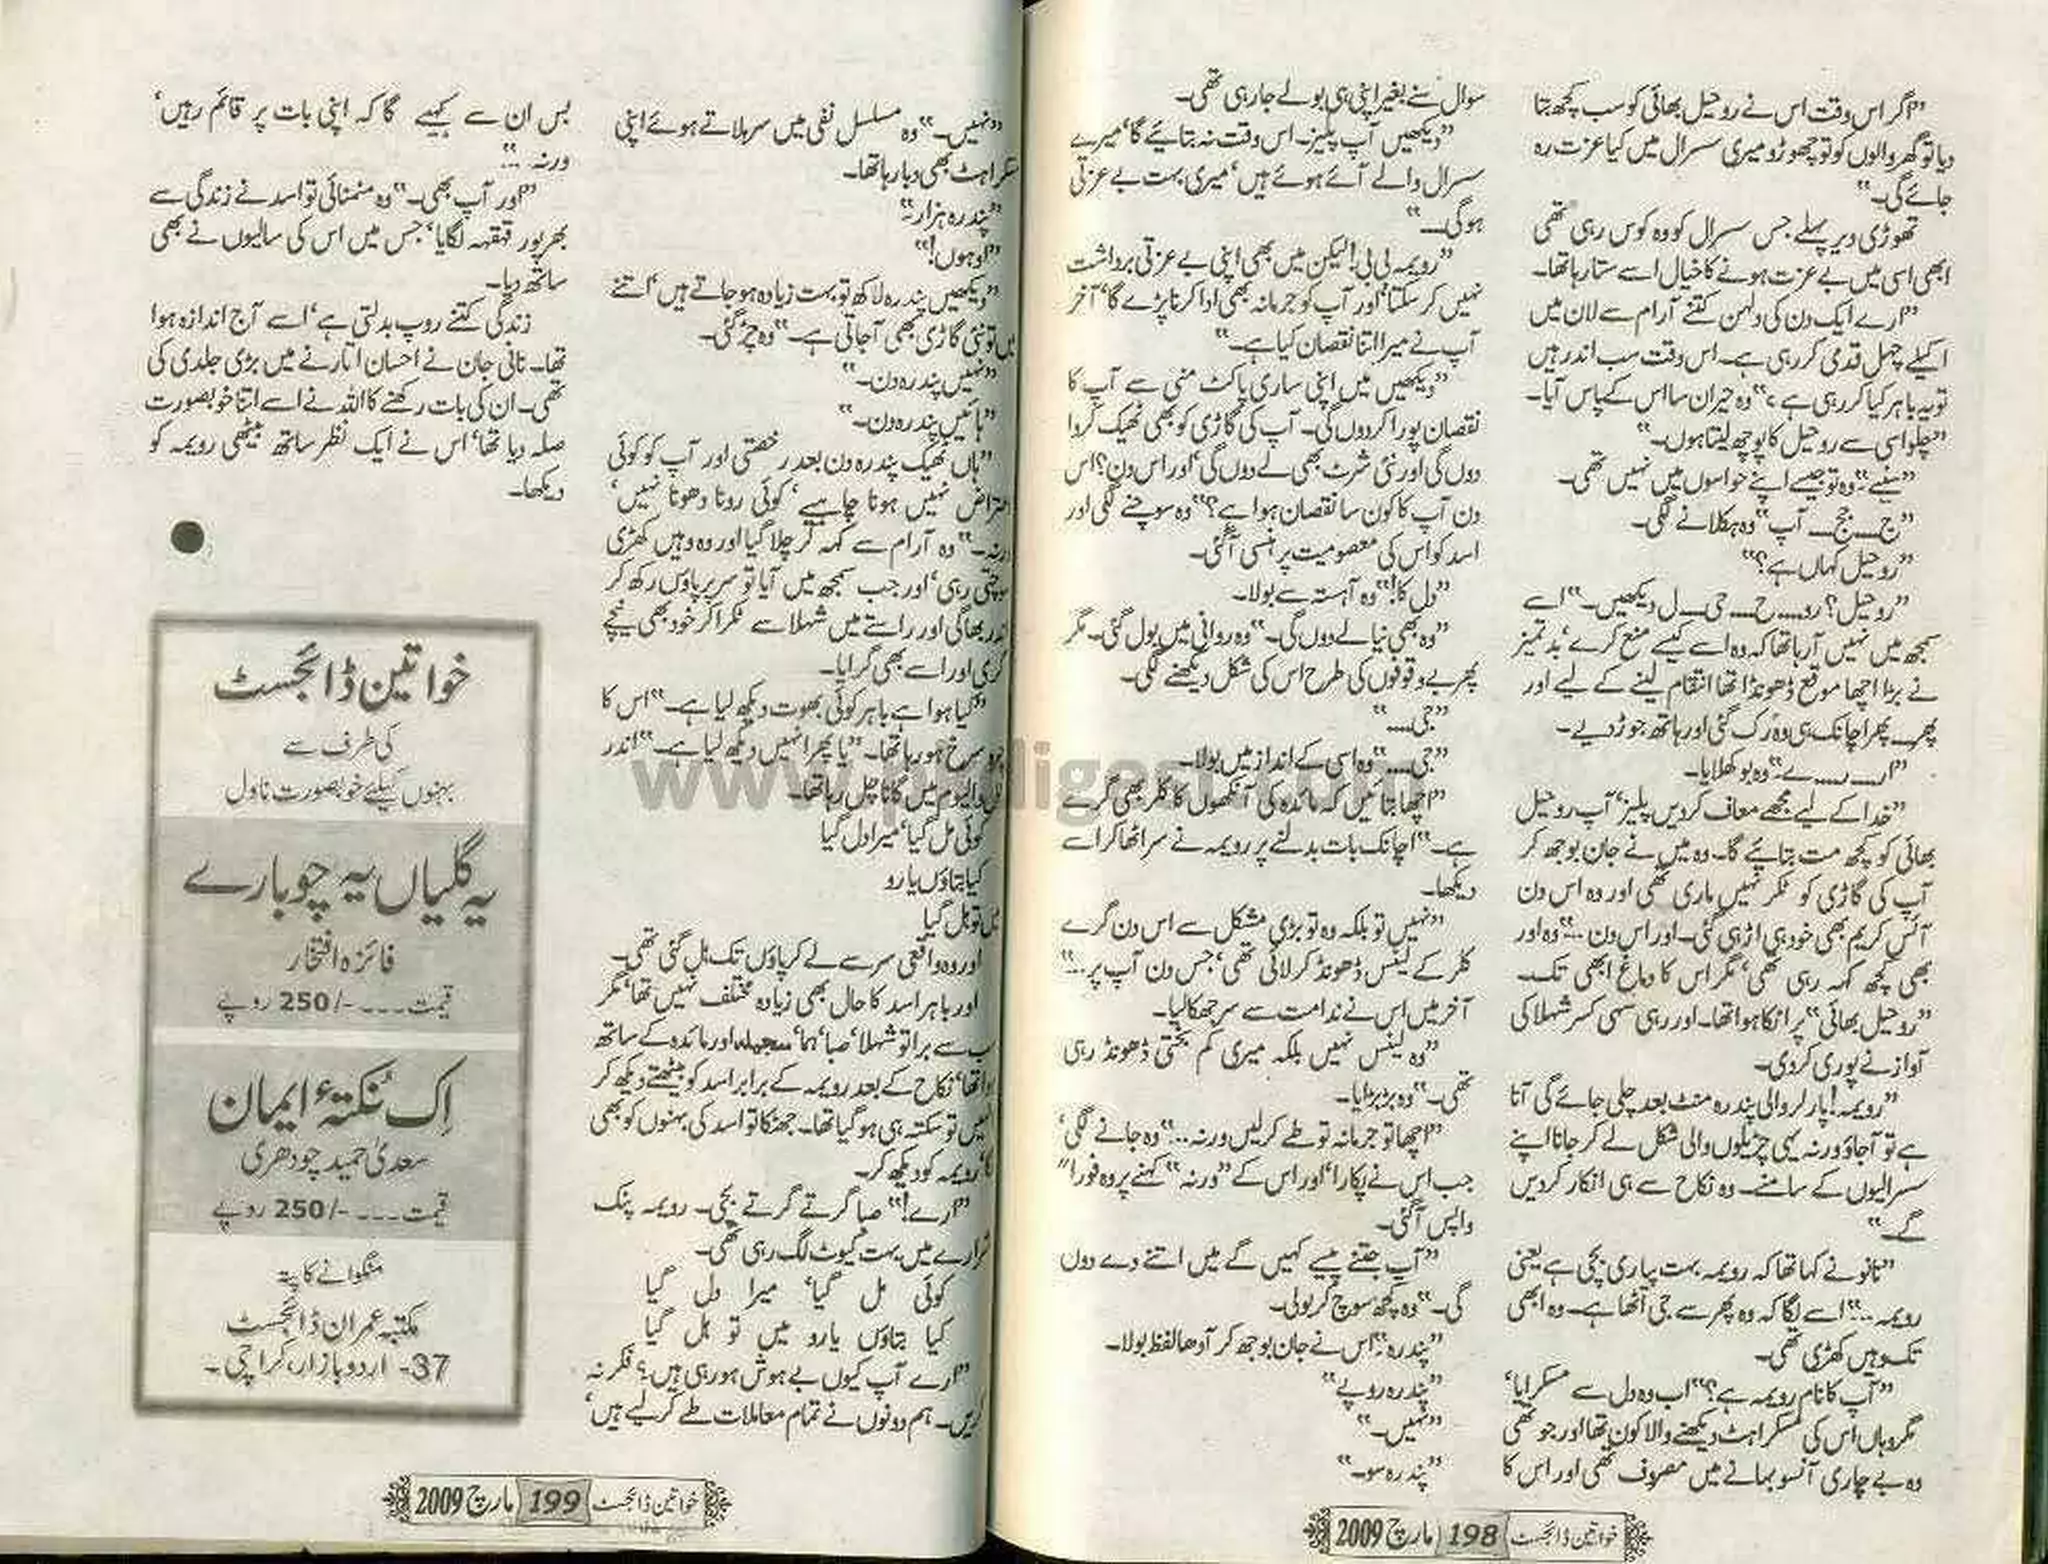 ”اگر اس وقت اس نے روحیل بھائی کو سب کچھ بتا
دیا تو گھر والوں کو تو چھوڑو میری سسرال میں کیا عزت رہ
جائے گی۔“
تھوڑی دیر پہلے جس سسرال کو وہ کوس رہی تھی
ابھی اسی میں بے عزت ہونے کا خیال اسے ستا رہا تھا۔
”ارے ایک دن کی دلہن کتنے آرام سے لان میں
اکیلے چہل قدمی کر رہی ہے۔ اس وقت سب اندر ہیں
تو یہ باہر کیا کر رہی ہے؟“ وہ حیران سا اس کے پاس آیا۔
”چلو اسی سے روحیل کا پوچھ لیتا ہوں۔“
”سنیے۔“ وہ تو جیسے اپنے حواسوں میں نہیں تھی۔
”ج۔۔ جج۔۔ آپ“ وہ ہکلانے لگی۔
”روحیل کہاں ہے؟“
”روحیل؟ رو۔۔ح۔۔حی۔۔ل دیکھیں۔“ اسے
سمجھ میں نہیں آ رہا تھا کہ وہ اسے کیسے منع کرے‘ بدتمیز
نے بڑا اچھا موقع ڈھونڈا تھا انتقام لینے کے لیے اور
پھر۔۔ پھر اچانک ہی وہ رک گئی اور ہاتھ جوڑ دیے۔
”ار۔۔ر۔۔ے۔“ وہ بوکھلایا۔
”خدا کے لیے مجھے معاف کر دیں پلیز‘ آپ روحیل
بھائی کو کچھ مت بتائیے گا۔ وہ میں نے جان بوجھ کر
آپ کی گاڑی کو ٹکر نہیں ماری تھی اور وہ اس دن
آئس کریم بھی خود ہی اڑ ہی گئی۔ اور اس دن ...“ وہ اور
بھی کچھ کہہ رہی تھی‘ مگر اس کا دماغ ابھی تک۔
”روحیل بھائی“ پر اٹکا ہوا تھا۔ اور رہی سہی کسر شہلا کی
آواز نے پوری کر دی۔
”رویمہ! پارلر والی پندرہ منٹ بعد چلی جائے گی آنا
ہے تو آ جاؤ ورنہ یہی چڑیلوں والی شکل لے کر جانا اپنے
سسرالیوں کے سامنے۔ وہ نکاح سے ہی انکار کر دیں
گے۔“
”نانو نے کہا تھا کہ رویمہ بہت پیاری بچی ہے یعنی
رویمہ ...“ اسے لگا کہ وہ پھر سے جی اٹھا ہے۔ وہ ابھی
تک وہیں کھڑی تھی۔
”آپ کا نام رویمہ ہے؟“ اب وہ دل سے مسکرایا‘
مگر وہاں اس کی مسکراہٹ دیکھنے والا کون تھا اور جو تھی
وہ بے چاری آنسو بہانے میں مصروف تھی اور اس کا
سوال سنے بغیر اپنی ہی بولے جا رہی تھی۔
”دیکھیں آپ پلیز۔ اس وقت نہ بتائیے گا‘ میرے
سسرال والے آئے ہوئے ہیں‘ میری بہت بے عزتی
ہوگی۔“
”رویمہ بی بی! لیکن میں بھی اپنی بے عزتی برداشت
نہیں کر سکتا‘ اور آپ کو جرمانہ بھی ادا کرنا پڑے گا‘ آخر
آپ نے میرا اتنا نقصان کیا ہے۔“
”دیکھیں میں اپنی ساری پاکٹ منی سے آپ کا
نقصان پورا کر دوں گی۔ آپ کی گاڑی کو بھی ٹھیک کروا
دوں گی اور نئی شرٹ بھی لے دوں گی‘ اور اس دن؟ اس
دن آپ کا کون سا نقصان ہوا ہے؟“ وہ سوچنے لگی اور
اسد کو اس کی معصومیت پر ہنسی آ گئی۔
”دل کا!“ وہ آہستہ سے بولا۔
”وہ بھی نیا لے دوں گی۔“ وہ روانی میں بول گئی۔ مگر
پھر بے وقوفوں کی طرح اس کی شکل دیکھنے لگی۔
”جی ...“
”جی ...“ وہ اسی کے انداز میں بولا۔
”اچھا بتائیں کہ مائدہ کی آنکھوں کا کلر بھی گرے
ہے۔“ اچانک بات بدلنے پر رویمہ نے سر اٹھا کر اسے
دیکھا۔
”نہیں تو بلکہ وہ تو بڑی مشکل سے اس دن گرے
کلر کے لینس ڈھونڈ کر لائی تھی‘ جس دن آپ پر ...“
آخر میں اس نے ندامت سے سر جھکا لیا۔
”وہ لینس نہیں بلکہ میری کم بختی ڈھونڈ رہی
تھی۔“ وہ بڑبڑایا۔
”اچھا تو جرمانہ تو طے کر لیں ورنہ ...“ وہ جانے لگی‘
جب اس نے پکارا‘ اور اس کے ”ورنہ“ کہنے پر وہ فوراً
واپس آ گئی۔
”آپ جتنے پیسے کہیں گے میں اتنے دے دوں
گی۔“ وہ کچھ سوچ کر بولی۔
”پندرہ؟“ اس نے جان بوجھ کر آدھا لفظ بولا۔
”پندرہ روپے“
”نہیں۔“
”پندرہ سو۔“
خواتین ڈائجسٹ 198 مارچ 2009
”نہیں۔“ وہ مسلسل نفی میں سر ہلاتے ہوئے اپنی
مسکراہٹ بھی دبا رہا تھا۔
”پندرہ ہزار۔“
”اوہوں!“
”دیکھیں پندرہ لاکھ تو بہت زیادہ ہو جاتے ہیں‘ اتنے
میں تو نئی گاڑی بھی آ جاتی ہے۔“ وہ چڑ گئی۔
”نہیں پندرہ دن۔“
”ہائیں پندرہ دن۔“
”ہاں ٹھیک پندرہ دن بعد رخصتی اور آپ کو کوئی
اعتراض نہیں ہونا چاہیے‘ کوئی رونا دھونا نہیں‘
ورنہ۔“ وہ آرام سے کہہ کر چلا گیا اور وہ وہیں کھڑی
سوچتی رہی‘ اور جب سمجھ میں آیا تو سر پر پاؤں رکھ کر
اندر بھاگی اور راستے میں شہلا سے ٹکرا کر خود بھی نیچے
گری اور اسے بھی گرایا۔
”کیا ہوا ہے باہر کوئی بھوت دیکھ لیا ہے۔“ اس کا
چہرہ سرخ ہو رہا تھا۔ ”یا پھر انہیں دیکھ لیا ہے۔“ اندر
فل والیوم میں گانا چل رہا تھا۔
کوئی مل گیا‘ میرا دل گیا
کیا بتاؤں یارو
میں تو ہل گیا
اور وہ واقعی سر سے لے کر پاؤں تک ہل گئی تھی۔
اور باہر اسد کا حال بھی زیادہ مختلف نہیں تھا‘ مگر
سب سے برا تو شہلا‘ صبا‘ ہما‘ سجیلہ اور مائدہ کے ساتھ
ہوا تھا‘ نکاح کے بعد رویمہ کے برابر اسد کو بیٹھتے دیکھ کر
انہیں تو سکتہ ہی ہو گیا تھا۔ جھٹکا تو اسد کی بہنوں کو بھی
لگا‘ رویمہ کو دیکھ کر۔
”ارے!“ صبا گرتے گرتے بچی۔ رویمہ پنک
شرارے میں بہت کیوٹ لگ رہی تھی۔
کوئی مل گیا‘ میرا دل گیا
کیا بتاؤں یارو میں تو ہل گیا
”ارے آپ کیوں بے ہوش ہو رہی ہیں؟ فکر نہ
کریں۔ ہم دونوں نے تمام معاملات طے کر لیے ہیں‘
بس ان سے کہیے گا کہ اپنی بات پر قائم رہیں‘
ورنہ ...“
”اور آپ بھی۔“ وہ منمنائی تو اسد نے زندگی سے
بھرپور قہقہہ لگایا‘ جس میں اس کی سالیوں نے بھی
ساتھ دیا۔
زندگی کتنے روپ بدلتی ہے‘ اسے آج اندازہ ہوا
تھا۔ نانی جان نے احسان اتارنے میں بڑی جلدی کی
تھی۔ ان کی بات رکھنے کا اللہ نے اسے اتنا خوبصورت
صلہ دیا تھا‘ اس نے ایک نظر ساتھ بیٹھی رویمہ کو
دیکھا۔
خواتین ڈائجسٹ
کی طرف سے
بہنوں کیلئے خوبصورت ناول
یہ گلیاں یہ چوبارے
فائزہ افتخار
قیمت --- /-250 روپے
اِک نُکتۂ ایمان
سعدیٰ حمید چودھری
قیمت --- /-250 روپے
منگوانے کا پتہ
مکتبہ عمران ڈائجسٹ
37- اردو بازار، کراچی۔
خواتین ڈائجسٹ 199 مارچ 2009